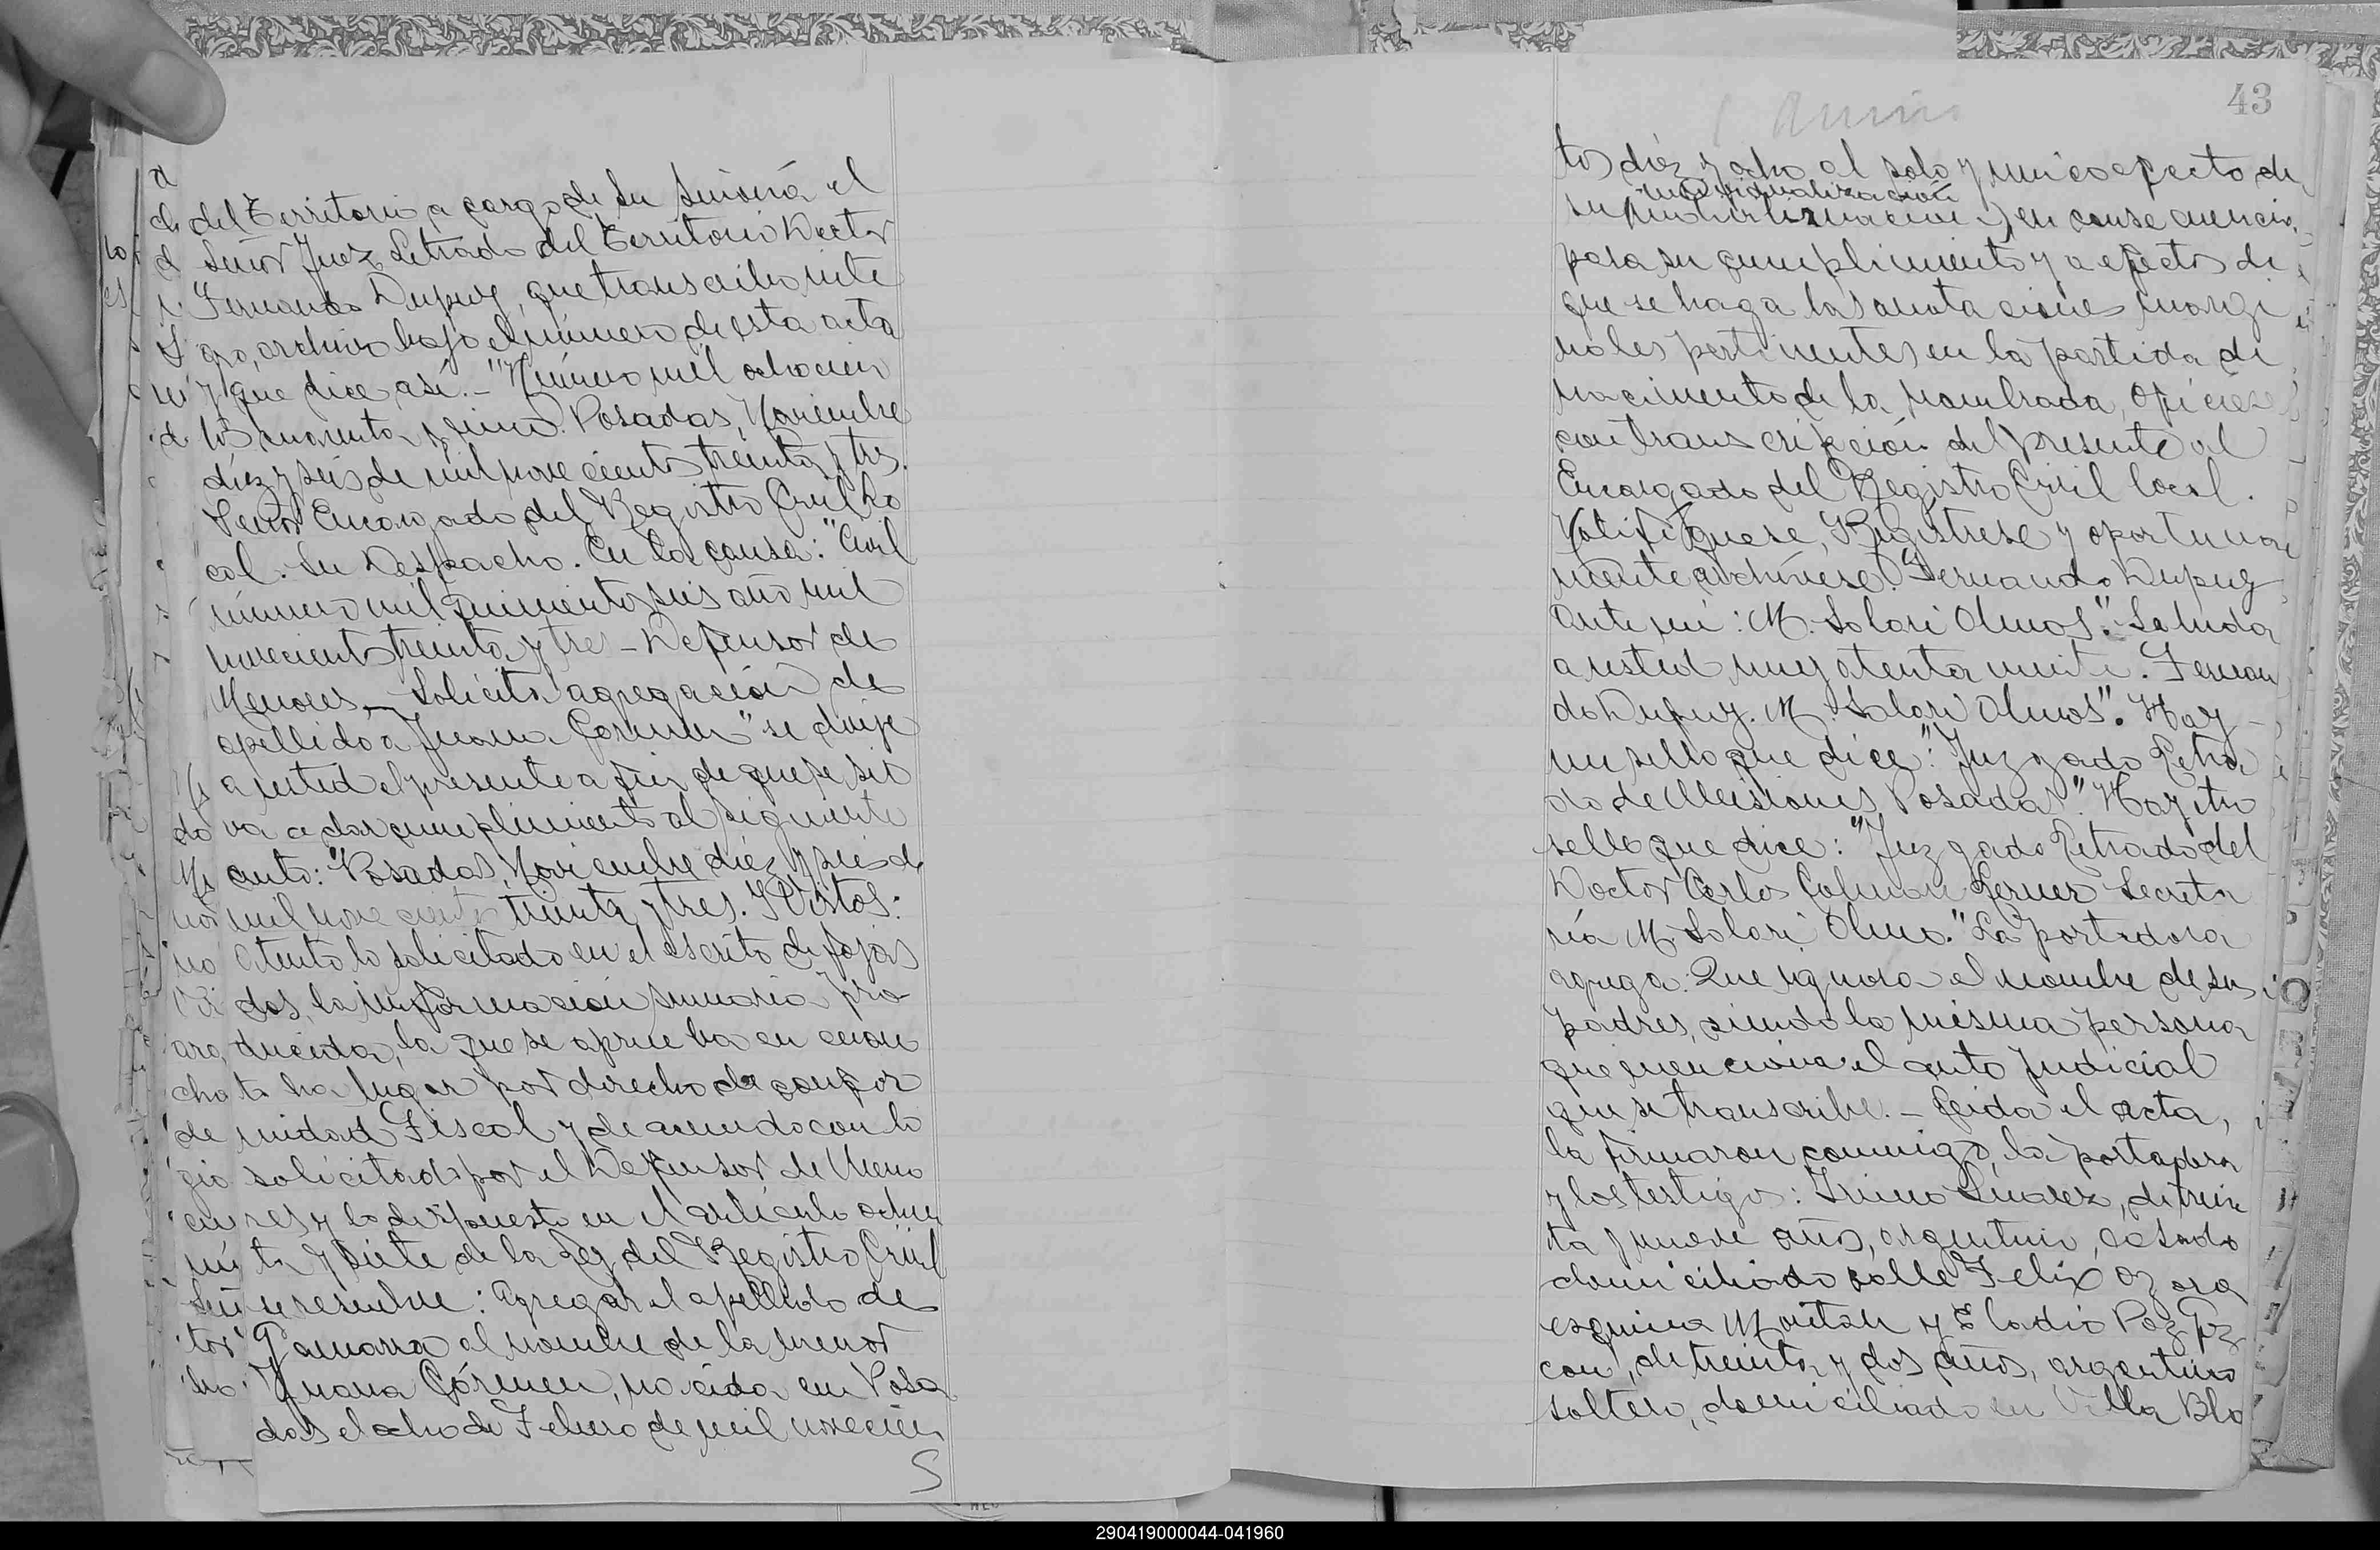 del Territorio a cargo de Su Señoría el
Señor Juez Letrado del Territorio Doctor
Fernando Dupuy, que transcribo ínte
gro, archivo bajo el número de esta acta
y que dice así.- "Número mil ochocien
tos cuarenta y cinco. Posadas, Noviembre
diez y seis de mil novecientos treinta y tres.
Señor Encargado del Registro Civil lo
cal. Su Despacho. En la causa: "Civil
número mil quinientos seis año mil
novecientos treinta y tres - Defensor de
Menores - Solicita agregación de
apellido a Juana Cármen" se dirije
a usted el presente a fin de que se sir
va a dar cumplimiento al siguiente
auto: "Posadas, Noviembre diez y seis de
mil novecientos treinta y tres. Y Vistos:
Atento lo solicitado en el escrito de fojas
dos, la información sumaria pro
ducida, la que se aprueba en cuan
to ha lugar por derecho de confor
midad Fiscal y de acuerdo con lo
solicitado por el Defensor de Meno
res y lo dispuesto en el artículo ochen
ta y siete de la Ley del Registro Civil
se resuelve: Agregar el apellido de
Gamarra al nombre de la menor
Juana Cármen, nacida en Posa
das el ocho de Febrero de mil novecien
S
43
tos diez y ocho al solo y único efecto de
individualización
su en consecuencia,
para su cumplimiento y a efectos de
que se haga las anotaciones margi
nales pertinentes en la partida de
nacimiento de la nombrada, ofíciese
con transcripción del presente al
Encargado del Registro Civil local.
Notifíquese, Regístrese y oportuna
mente archívese. "Fernando Dupuy
Ante mí: M. Solari Olmos". Saluda
a usted muy atentamente. Fernan
do Dupuy. M. Solari Olmos". Hay
un sello que dice: "Juzgado Letra
do de Misiones Posadas". Hay otro
sello que dice: "Juzgado Letrado del
Doctor Carlos Lerner Secreta
ría M. Solari Olmo." La portadora
agrega: Que ignora el nombre de sus
padres, siendo la misma persona
que menciona el auto judicial
que se transcribe. - Leida el acta,
la firmaron conmigo, la portadora
y los testigos: Suarez, de trein
ta y nueve años, argentino, casado
domiciliado calle Felix Azara
esquina y Eladio
con, de treinta y dos años, argentino
soltero, domiciliado en Villa Bla
290419000044-041960